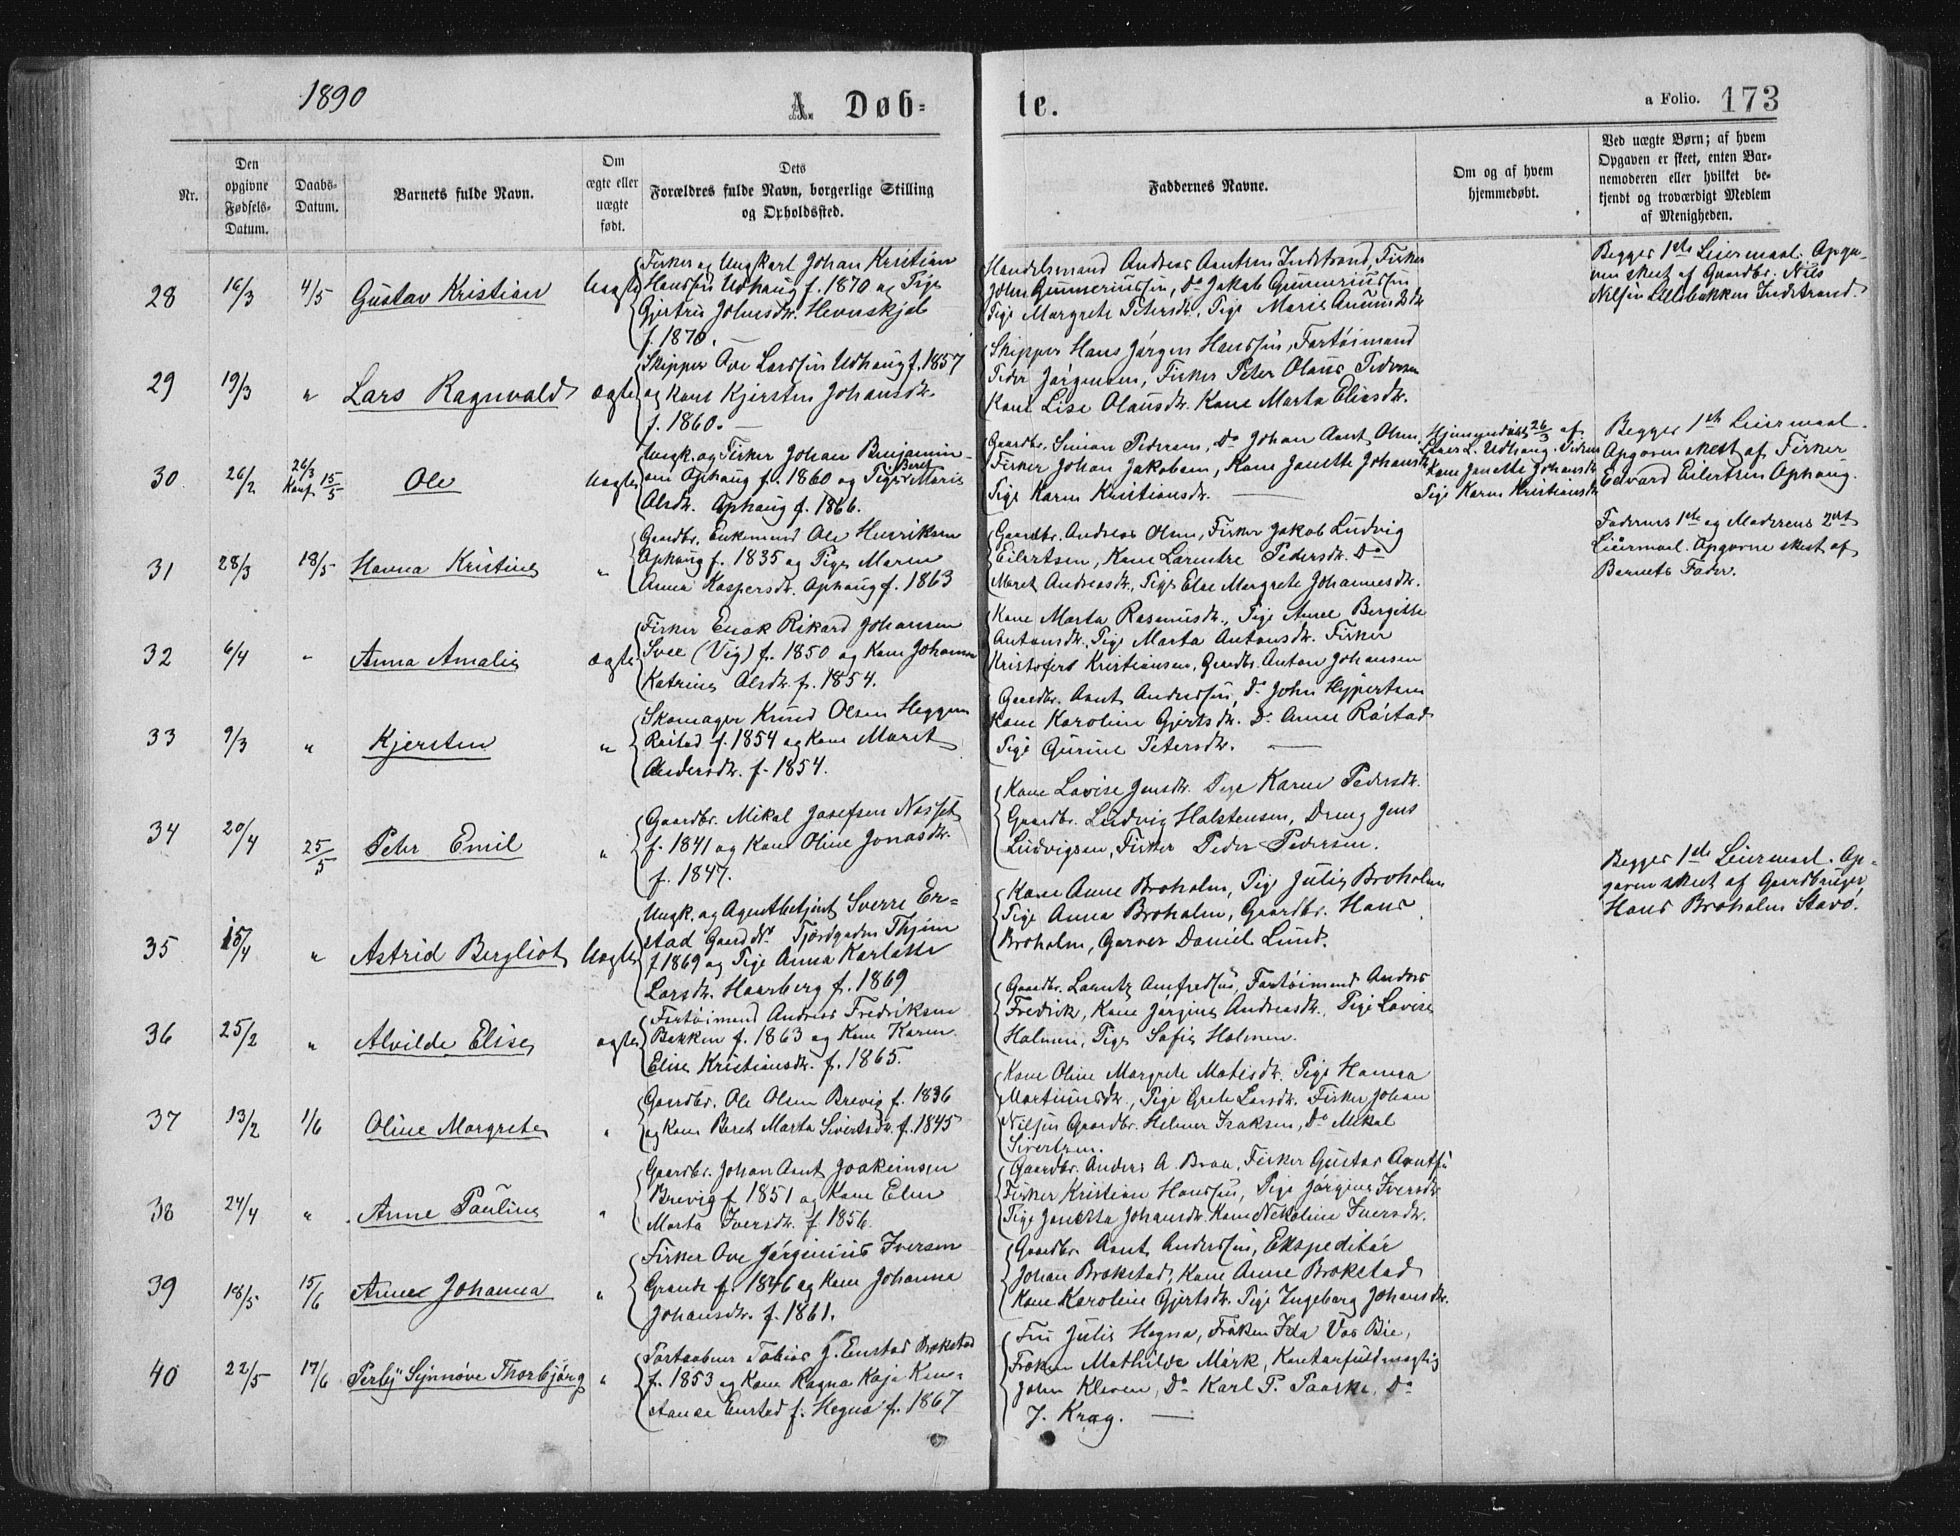 1890
A. Døb-
te.
a Folio. 173
Nr.
Den
opgivne
Fødsels-
Datum.
Daabs-
Datum.
Barnets fulde Navn.
Om
ægte eller
uægte
født.
Dets
Forældres fulde Navn, borgerlige Stilling
og Opholdssted.
Faddernes Navne.
Om og af hvem
hjemmedøbt.
Ved uægte Børn; af hvem
Opgaven er skeet, enten Bar-
nemoderen eller hvilket be-
kjendt og troværdigt Medlem
af Menigheden.
28 16/3 4/5 Gustav Kristian Uægte
Fisker og Ungkarl Johan Kristian
Hanssen Udhaug f. 1870 og Pige
Gjertrud Johnsdtr.
f. 1870.
Handelsmand Andreas Arntsen Indstrand, Fisker
John Gunneriussen, Do Jakob Gunneriussen
Pige Margrete Petersdtr., Pige Marie
Begges 1ste Leiermaal. Opga-
ven skeet af Gaardbr. Nils
Nilsen Lillebakken Indstrand.
29 19/3 " Lars Ragnvald ægte
Skipper Ove Larssen Udhaug f. 1857
og Kone Kjersten Johansdtr.
f. 1860. —
Skipper Hans Jørgen Hanssen, Fartøimand
Peder Jørgensen, Fisker Peter Olaus Pedersen
Kone Lise Olausdtr. Kone Marta Eliasdtr.
30 26/2 26/3 Konf. 15/5 Ole Uægte
Ungk. og Fisker Johan Benjamin-
sen Ophaug f. 1860 og Pige Beret Marie
Olsdtr. Ophaug f. 1866.
Gaardbr. Simon Pedersen, Do Johan Arnt Olsen
Fisker Johan Jakobsen, Kone Janette Johansdtr
Pige Karen Kristiansdtr. —
Hjemmedøbt 26/3 af
Lærer L. Udhaug.
Kone Janette Johansdtr
Pige Karen Kristiansdtr
Begges 1ste Leiermaal.
Opgaven skeet af Fisker
Edvard Eilertsen Ophaug.
31 28/3 18/5 Hanna Kristine "
Gaardbr. Enkemand Ole Henriksen
Ophaug f. 1835 og Pige Maren
Anna Kaspersdtr. Ophaug f. 1863
Gaardbr. Andreas Olsen, Fisker Jakob Ludvig
Eilertsen, Kone Larentse Pedersdtr. Do
Maret Andreasdtr, Pige Else Margrete Johannesdtr.
Faderens 1ste og Moderens 2det
Leiermaal. Opgaven skeet af
Barnets Fader.
32 6/4 " Anna Amalie ægte
Fisker Enok Rikard Johansen
(Vig) f. 1850 og Kone Johanna
Katrine Olsdtr. f. 1854.
Kone Marta Rasmusdtr., Pige Anne Bergitte
Antonsdtr. Pige Marta Antonsdtr. Fisker
Kristofer Kristiansen, Gaardbr. Anton Johansen
33 9/3 " Kjersten "
Skomager Knud Olsen Heggen
Røstad f. 1854 og Kone Maret
Andersdtr. f. 1854.
Gaardbr. Arnt Anderssen, Do John
Kone Karoline Gjertsdtr. Do Anne Røstad
Pige Gurine Petersdtr. —
34 20/4 25/5 Peter Emil "
Gaardbr. Mikal Josefsen Næsset
f. 1841 og Kone Oline Jonasdtr.
f. 1847.
Kone Lovise Jensdtr. Pige Karen Pedersdtr.
Gaardbr. Ludvig Halstensen, Dreng Jens
Ludvigsen, Fisker Peder Pedersen.
35 15/4 " Astrid Bergliot Uægte
Ungk. og Agentbetjent Sverre Er-
stad Gaard No Fjordgaden Thjem
f. 1869 og Pige Anna Karlotte
Larsdtr. Haarberg f. 1869
Kone Anne Broholm, Pige Julie Broholm
Pige Anna Broholm, Gaardbr. Hans
Broholm, Garver Daniel Lund.
Begges 1ste Leiermaal. Op-
gaven skeet af Gaardbruger
Hans Broholm Stavø.
36 25/2 " Alvilde Elise ægte
Fartøimand Andreas Fredriksen
Bakken f. 1863 og Kone Karen
Elise Kristiansdtr. f. 1865.
Gaardbr. Larentz Amfredsen, Fartøimand Anders
Fredrik, Kone Jørgine Andreasdtr., Pige Lovise
Holmen, Pige Sofie Holmen.
37 13/2 1/6 Oline Margrete "
Gaardbr. Ole Olsen Brevig f. 1836
og Kone Beret Marta Sivertsdtr. f. 1845
Kone Oline Margrete Matisdtr. Pige Hanna
Martinusdtr., Pige Grete Larsdtr. Fisker Johan
Nilsen Gaardbr. Helmer Isaksen, Do Mikal
Sivertsen.
38 24/4 " Anne Pauline "
Gaardbr. Johan Arnt Joakimsen
Brevig f. 1851 og Kone Elen
Marta Iversdtr. f. 1856.
Gaardbr. Anders A. Braa, Fisker Gustav Arntsen
Fisker Kristian Hanssen, Pige Jørgine Iversdtr.
Pige Janetta Johansdtr. Kone Nekoline Iversdtr.
39 18/5 15/6 Anne Johanna "
Fisker Ove Jørginius Iversen
Grande f. 1846 og Kone Johanna
Johansdtr. f. 1861.
Gaardbr. Arnt Anderssen, Ekspeditør
Johan Brokstad, Kone Anne Brokstad
Kone Karoline Gjertsdtr. Pige Ingeborg Johansdtr.
40 22/5 17/6 Synnøve Thorbjørg "
Postaabner Tobias J. Enstad Brokstad
f. 1853 og Kone Ragna Kaja Kon-
stanse Enstad f. Hegna f. 1867
Fru Julie Hegna, Frøken Ida Vos Bie,
Frøken Mathilde Mørk, Kontorfuldmægtig
John Kleven, Do Karl P. Paaske, Do
J. Krag. —